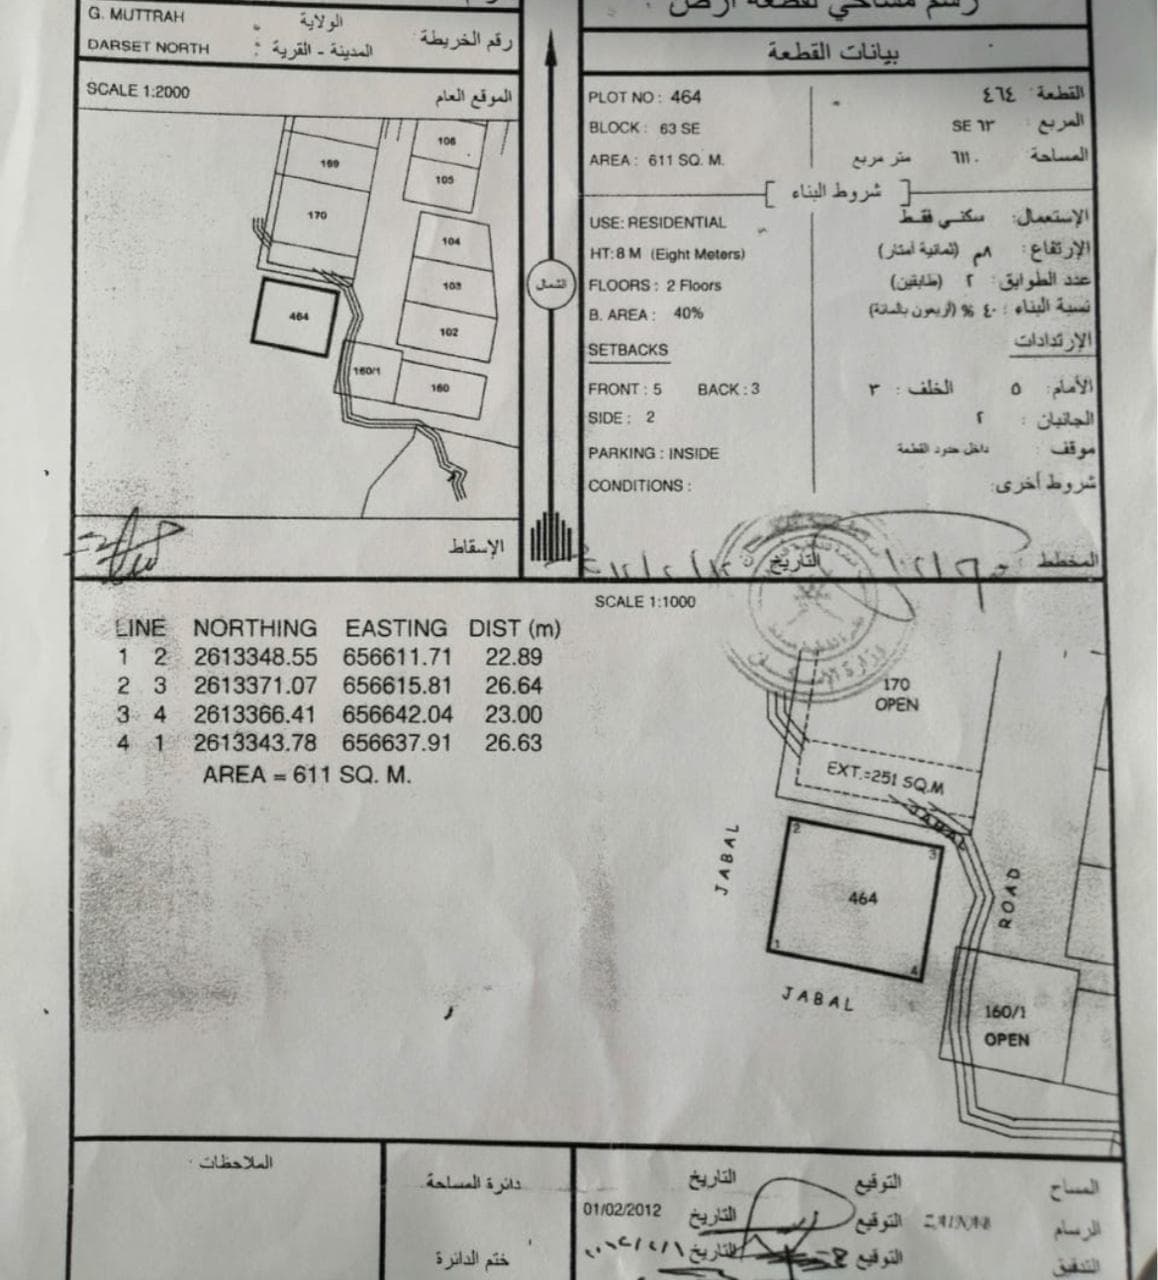 رسم مساحي لقطعة أرض
G. MUTTRAH الولاية :
رقم الخريطة
DARSET NORTH المدينة - القرية :
SCALE 1:2000 الموقع العام
106
169
105
170
104
103
464
102
160/1
160
الإسقاط
الشمال
بيانات القطعة
PLOT NO : 464 القطعة : ٤٦٤
BLOCK : 63 SE المربع : SE ٦٣
AREA : 611 SQ. M. المساحة : ٦١١. متر مربع
شروط البناء
USE: RESIDENTIAL الإستعمال: سكني فقط
HT: 8 M (Eight Meters) الإرتفاع : ٨م (ثمانية أمتار)
FLOORS : 2 Floors عدد الطوابق : ٢ (طابقين)
B. AREA : 40% نسبة البناء : ٤٠ % (أربعون بالمائة)
SETBACKS الإرتدادات
FRONT : 5 BACK : 3 الأمام: ٥ الخلف : ٣
SIDE : 2 الجانبان : ٢
PARKING : INSIDE موقف : داخل حدود القطعة
CONDITIONS : شروط أخرى:
المخطط التاريخ
SCALE 1:1000
LINE NORTHING EASTING DIST (m)
1 2 2613348.55 656611.71 22.89
2 3 2613371.07 656615.81 26.64
3 4 2613366.41 656642.04 23.00
4 1 2613343.78 656637.91 26.63
AREA = 611 SQ. M.
وزارة الإسكان
170
OPEN
EXT.=251 SQ.M
JABAL
2
3
JABAL
464
ROAD
1
4
JABAL
160/1
OPEN
الملاحظات :
دائرة المساحة
ختم الدائرة
المساح التوقيع التاريخ
الرسام ZAINAB التوقيع التاريخ 01/02/2012
التدقيق التوقيع التاريخ